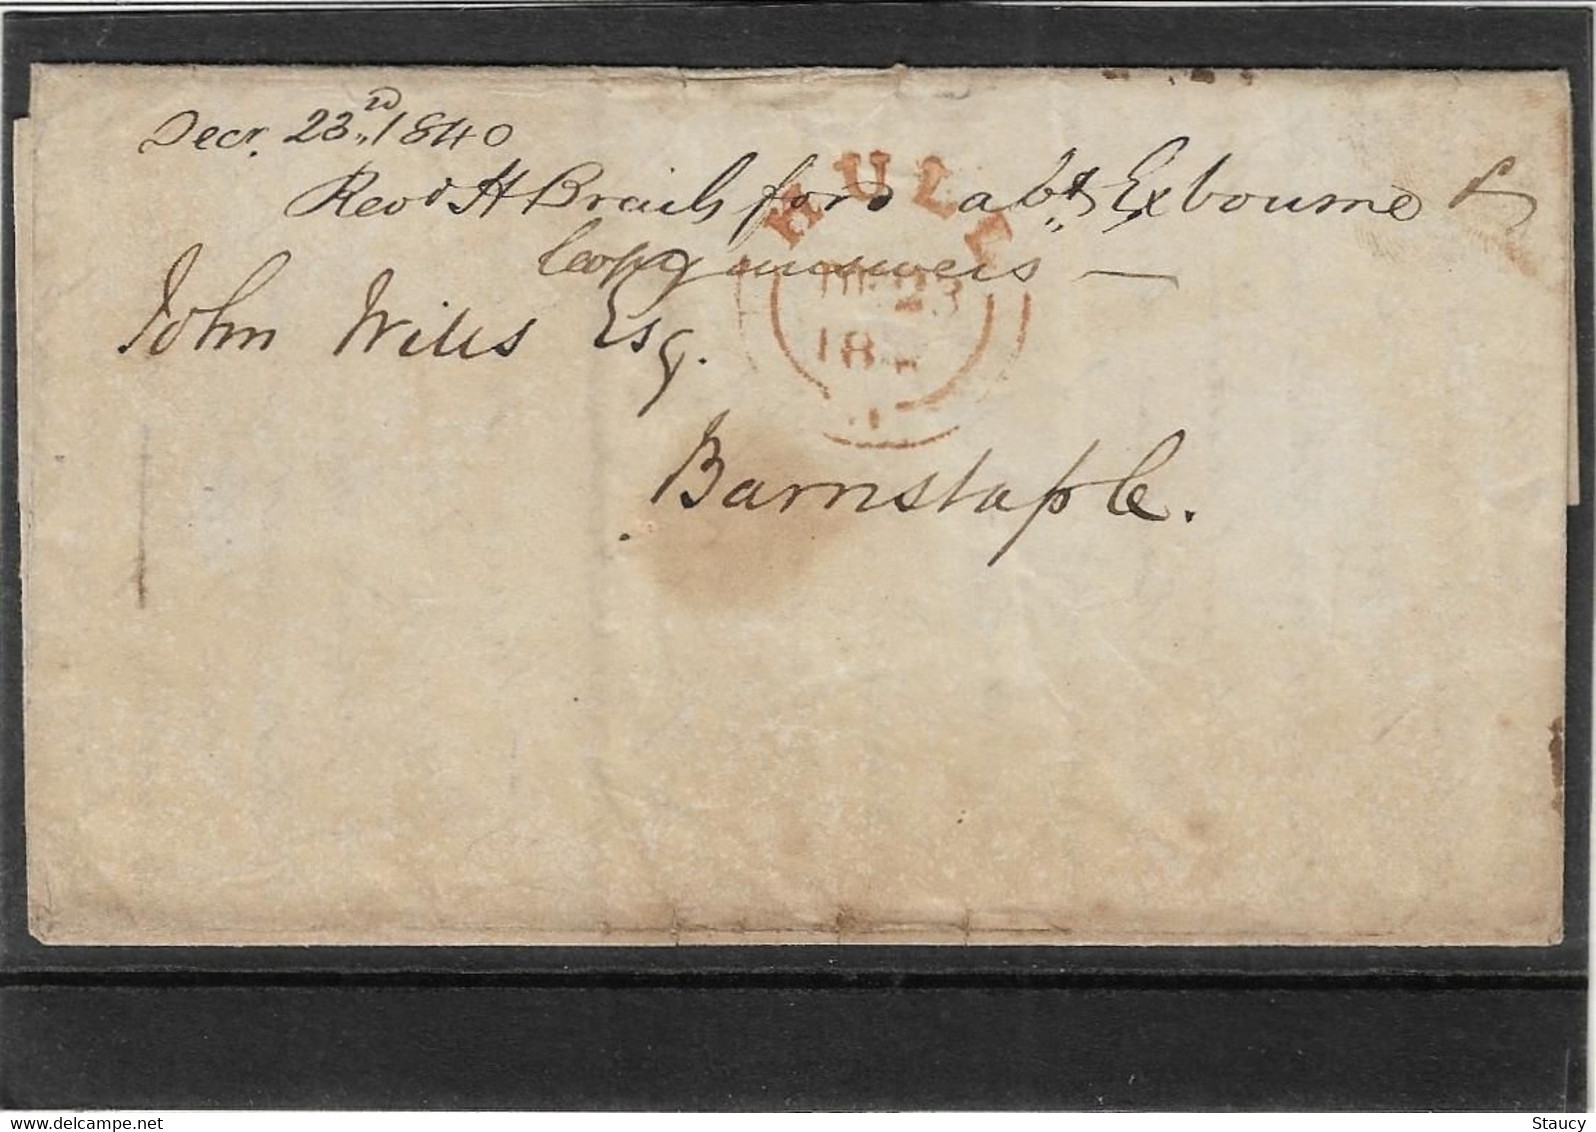 Decr. 23rd 1840
Revd H Brailsford abt Exbourne
Copy answers —
HULL
DE 23
18
John Wills Esq.
Barnstaple.
www.delcampe.net
Staucy